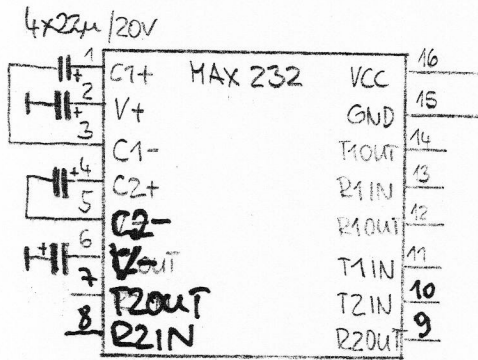 4x22µ/20V
MAX 232
1 C1+
2 V+
3 C1-
4 C2+
5 C2-
6 V-
7 T2OUT
8 R2IN
VCC 16
GND 15
T1OUT 14
R1IN 13
R1OUT 12
T1IN 11
T2IN 10
R2OUT 9
+
+
+
+